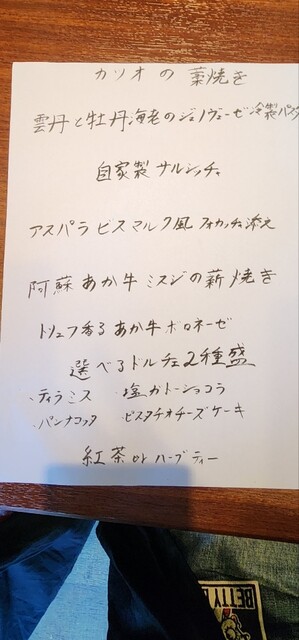 カツオの藁焼き
雲丹と牡丹海老のジェノヴェーゼ冷製パスタ
自家製サルシッチャ
アスパラビスマルク風フォカッチャ添え
阿蘇あか牛ミスジの薪焼き
トリュフ香るあか牛ボロネーゼ
選べるドルチェ2種盛
・ティラミス ・塩ガトーショコラ
・パンナコッタ ・ピスタチオチーズケーキ
紅茶orハーブティー
BETTY